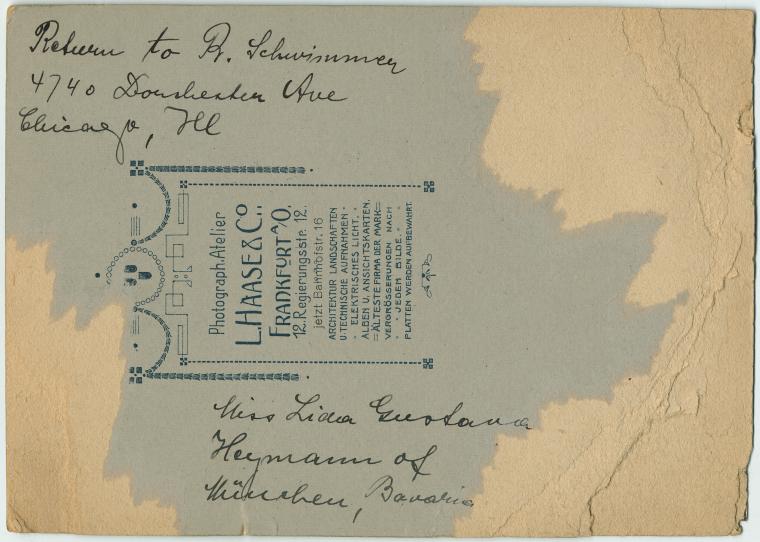 Return to R. Schwimmer
4740 Dorchester Ave
Chicago, Ill
Photograph. Atelier
L. HAASE & Co.,
FRANKFURT A/O,
12. Regierungsstr. 12.
jetzt Bahnhofstr. 16
ARCHITEKTUR LANDSCHAFTEN
U. TECHNISCHE AUFNAHMEN
ELEKTRISCHES LICHT.
ALBEN U. ANSICHTSKARTEN.
=ÄLTESTE FIRMA DER MARK=
VERGRÖSSERUNGEN NACH
JEDEM BILDE.
PLATTEN WERDEN AUFBEWAHRT.
Miss Lida Gustava
Heymann of
München, Bavaria